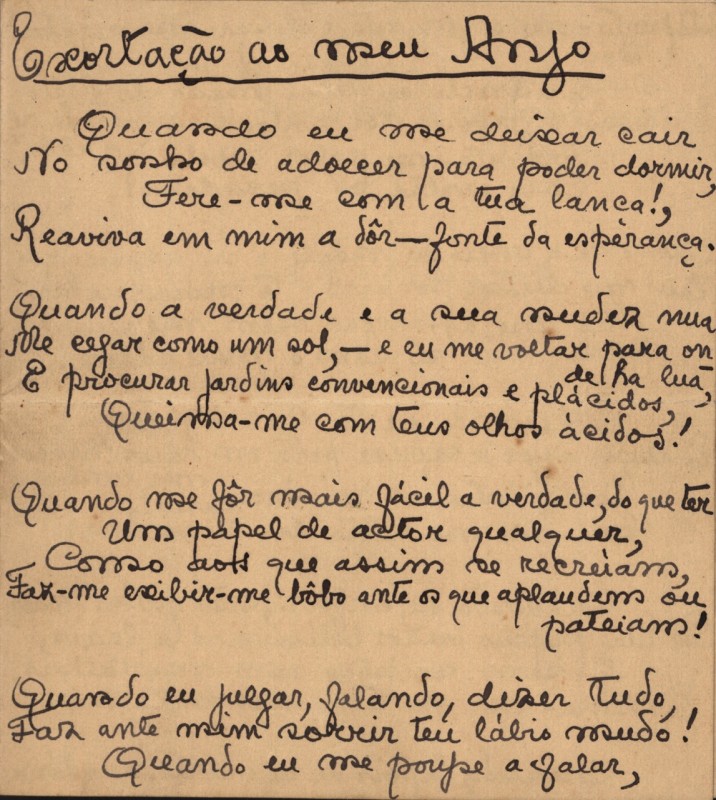 Exortação ao meu Anjo
Quando eu me deixar cair
No sonho de adoecer para poder dormir,
Fere-me com a tua lança!,
Reaviva em mim a dôr—fonte da esperança.
Quando a verdade e a sua mudez nua
Me cegar como um sol,—e eu me voltar para on
de ha lua,
E procurar jardins convencionais e plácidos,
Queima-me com teus olhos ácidos!
Quando me fôr mais fácil a verdade, do que ter
Um papel de actor qualquer,
Como aos que assim se recreiam,
Faz-me exibir-me bôbo ante os que aplaudem ou
pateiam!
Quando eu julgar, falando, dizer tudo,
Faz ante mim sorrir teu lábio mudo!
Quando eu me poupe a falar,